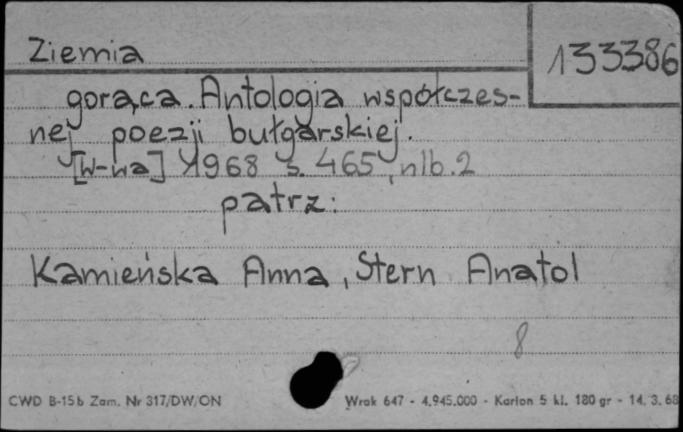 Ziemia
133386
gorąca. Antologia współczes-
nej poezji bułgarskiej.
[W-wa] 1968 s. 465, nlb. 2
patrz:
Kamieńska Anna, Stern Anatol
8
CWD B-15b Zam. Nr 317/DW/ON
Wrak 647 - 4.945.000 - Karton 5 kl. 180 gr - 14.3.68